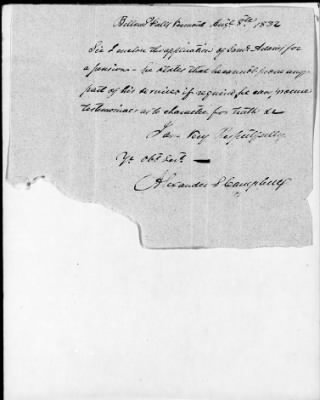 Bellows Falls Vermont Augt 8th 1832
Sir I enclose the application of Saml Adams for
a pension - he states that he cannot prove any
part of his services if required, he can procure
testimonies as to character for truth &c
I am Very Respectfully
Yr obt Sert
Alexander S Campbell